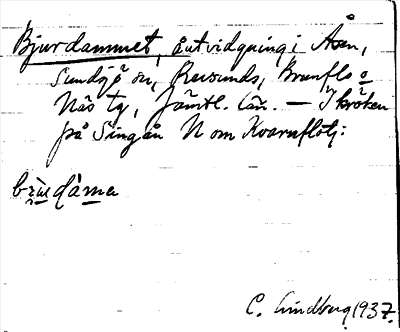 Bjurdammet, åutvidgning i Åsn,
Sundsjö sn, Revsunds, Brunflo o
Näs tg, Jämtl. län. — I kröken
på Singån N om Kvarnflotj:
C. Lindberg 1937.